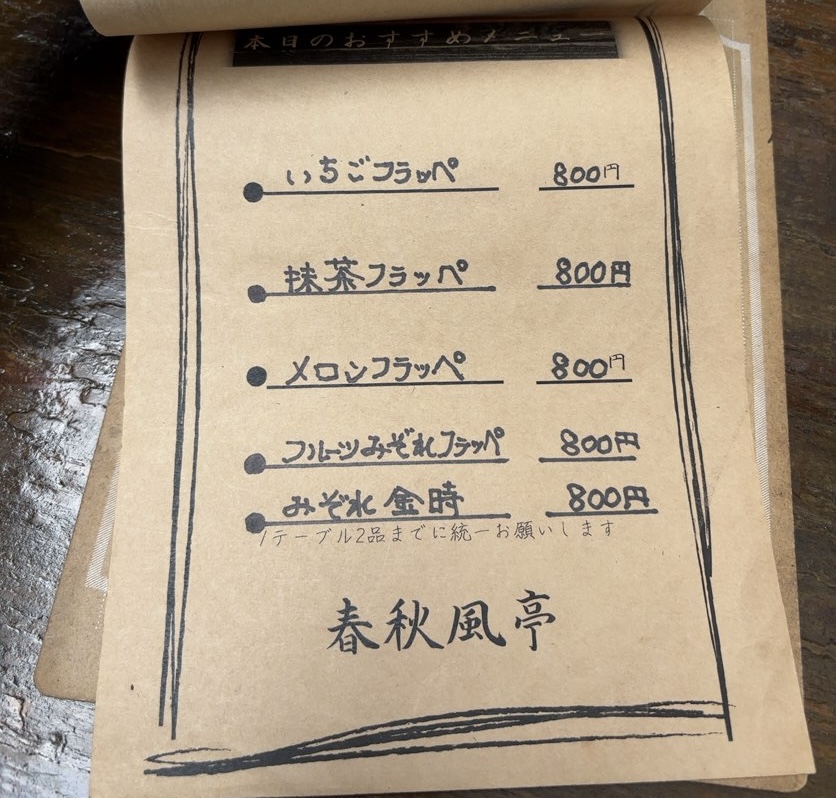 本日のおすすめメニュー
いちごフラッペ 800円
抹茶フラッペ 800円
メロンフラッペ 800円
フルーツみぞれフラッペ 800円
みぞれ金時 800円
1テーブル2品までに統一お願いします
春秋風亭